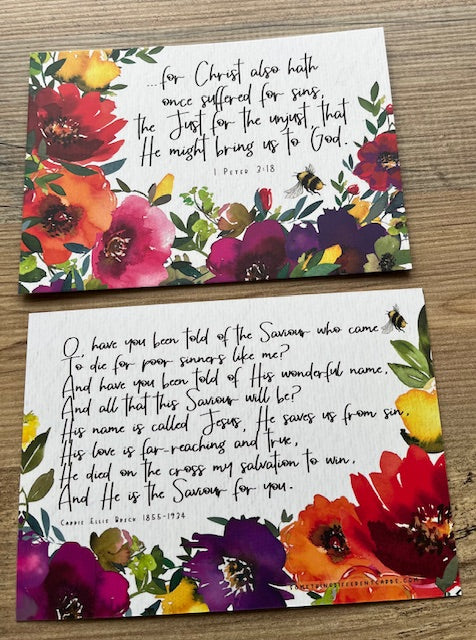 ...for Christ also hath
once suffered for sins,
the Just for the unjust, that
He might bring us to God.
1 Peter 3:18
O, have you been told of the Saviour who came
To die for poor sinners like me?
And have you been told of His wonderful name,
And all that this Saviour will be?
His name is called Jesus, He saves us from sin,
His love is far-reaching and true,
He died on the cross my salvation to win,
And He is the Saviour for you.
Carrie Ellis Breck 1855-1934
somethingdifferentcards.com